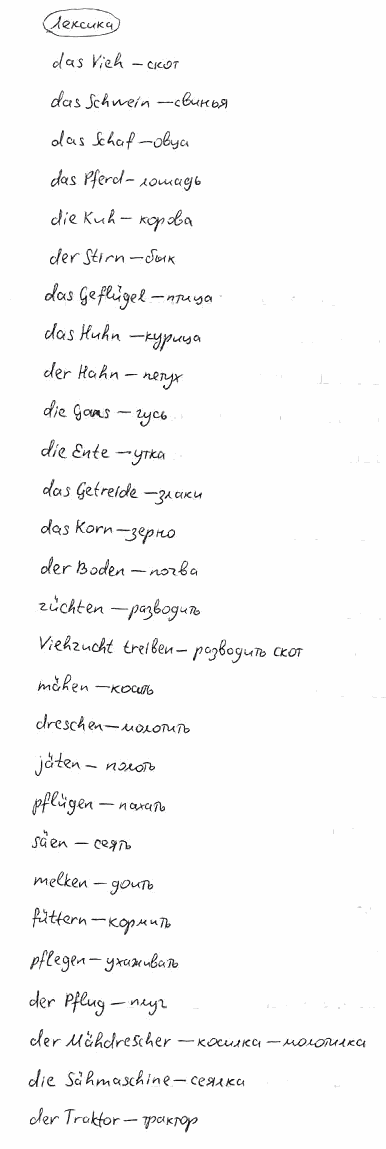 Лексика
das Vieh – скот
das Schwein – свинья
das Schaf – овца
das Pferd – лошадь
die Kuh – корова
der Stirn – бык
das Geflügel – птица
das Huhn – курица
der Hahn – петух
die Gans – гусь
die Ente – утка
das Getreide – злаки
das Korn – зерно
der Boden – почва
züchten – разводить
Viehzucht treiben – разводить скот
mähen – косить
dreschen – молотить
jäten – полоть
pflügen – пахать
säen – сеять
melken – доить
füttern – кормить
pflegen – ухаживать
der Pflug – плуг
der Mähdrescher – косилка – молотилка
die Sähmaschine – сеялка
der Traktor – трактор